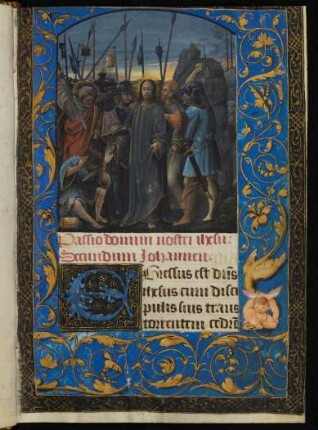 Passio domini nostri ihesu
Secundum Johannem
Egressus est dñs
ihesus cum disci
pulis suis trans
torrentem cedrõ